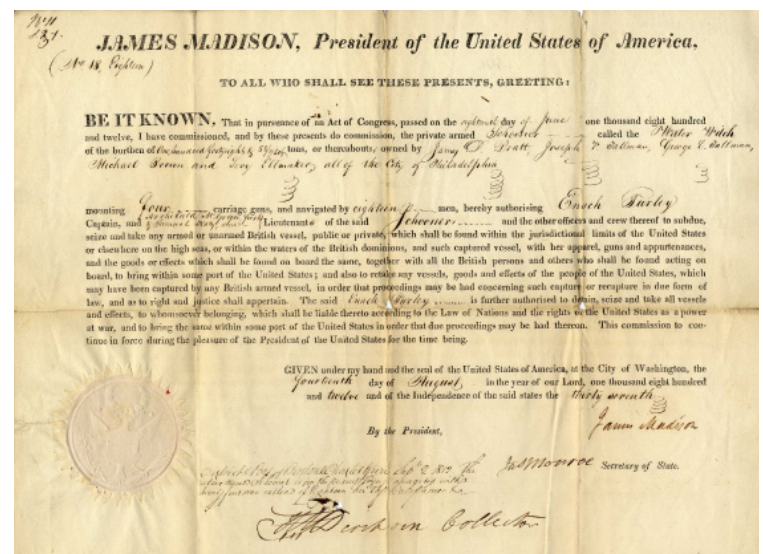 JAMES MADISON, President of the United States of America,
(No 18, Eighteen)
TO ALL WHO SHALL SEE THESE PRESENTS, GREETING:
BE IT KNOWN, That in pursuance of an Act of Congress, passed on the eighteenth day of June one thousand eight hundred
and twelve, I have commissioned, and by these presents do commission, the private armed Schooner called the Water Witch
of the burthen of One hundred forty eight & tons, or thereabouts, owned by James D Pratt Joseph T Tallman, George C. Tallman,
Michael and Levy Ellmaker, all of the City of Philadelphia
mounting Four carriage guns, and navigated by eighteen men, hereby authorising Enoch Turley
Captain, and Lieutenants of the said Schooner and the other officers and crew thereof to subdue,
seize and take any armed or unarmed British vessel, public or private, which shall be found within the jurisdictional limits of the United States
or elsewhere on the high seas, or within the waters of the British dominions, and such captured vessel, with her apparel, guns and appurtenances,
and the goods or effects which shall be found on board the same, together with all the British persons and others who shall be found acting on
board, to bring within some port of the United States; and also to retake any vessels, goods and effects of the people of the United States, which
may have been captured by any British armed vessel, in order that proceedings may be had concerning such capture or recapture in due form of
law, and as to right and justice shall appertain. The said Enoch Turley is further authorised to detain, seize and take all vessels
and effects, to whomsoever belonging, which shall be liable thereto according to the Law of Nations and the rights of the United States as a power
at war, and to bring the same within some port of the United States in order that due proceedings may be had thereon. This commission to con-
tinue in force during the pleasure of the President of the United States for the time being.
GIVEN under my hand and the seal of the United States of America, at the City of Washington, the
fourteenth day of August, in the year of our Lord, one thousand eight hundred
and twelve and of the Independence of the said states the thirty seventh
James Madison
By the President,
Jas Monroe Secretary of State.
Collector